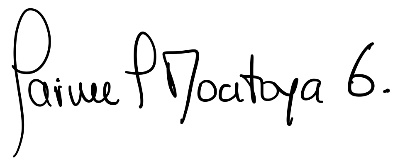 Jaime P Montoya G.